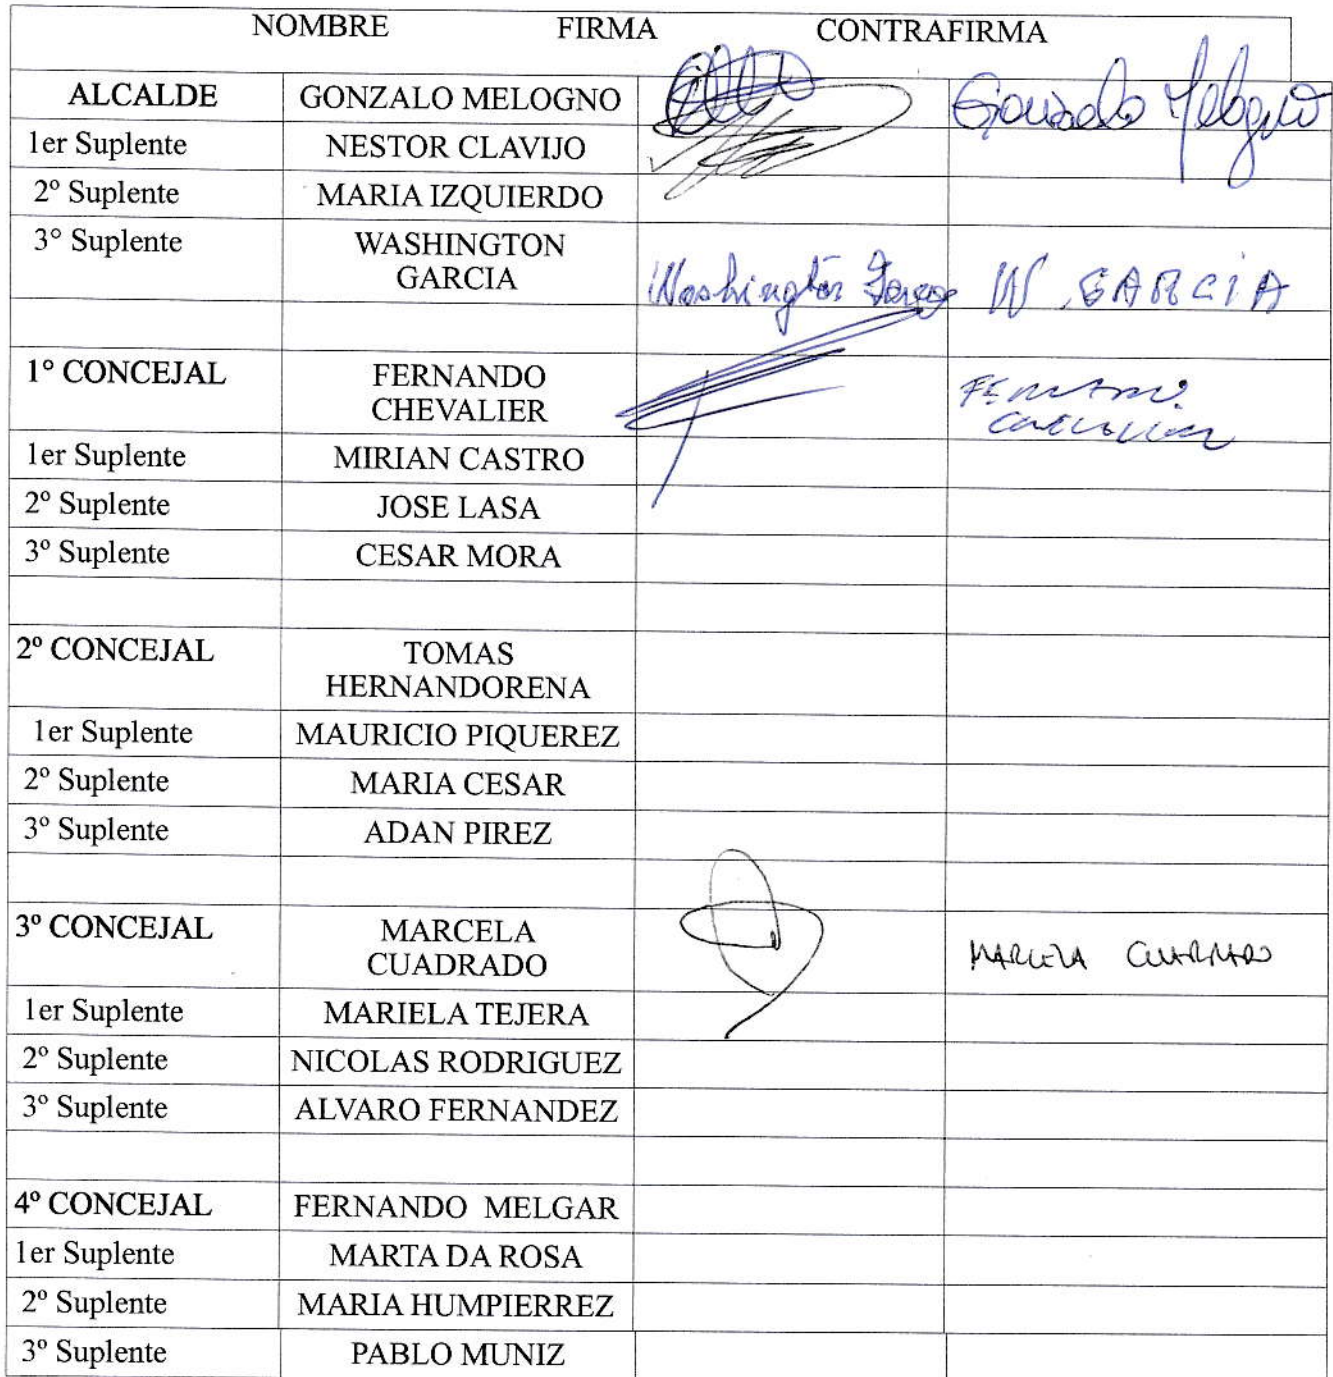 NOMBRE FIRMA CONTRAFIRMA
ALCALDE GONZALO MELOGNO Gonzalo Melogno
1er Suplente NESTOR CLAVIJO
2º Suplente MARIA IZQUIERDO
3° Suplente WASHINGTON
GARCIA Washington W. GARCIA
1º CONCEJAL FERNANDO
CHEVALIER
1er Suplente MIRIAN CASTRO
2º Suplente JOSE LASA
3º Suplente CESAR MORA
2º CONCEJAL TOMAS
HERNANDORENA
1er Suplente MAURICIO PIQUEREZ
2º Suplente MARIA CESAR
3º Suplente ADAN PIREZ
3º CONCEJAL MARCELA
CUADRADO MARCELA CUADRADO
1er Suplente MARIELA TEJERA
2º Suplente NICOLAS RODRIGUEZ
3º Suplente ALVARO FERNANDEZ
4º CONCEJAL FERNANDO MELGAR
1er Suplente MARTA DA ROSA
2º Suplente MARIA HUMPIERREZ
3º Suplente PABLO MUNIZ